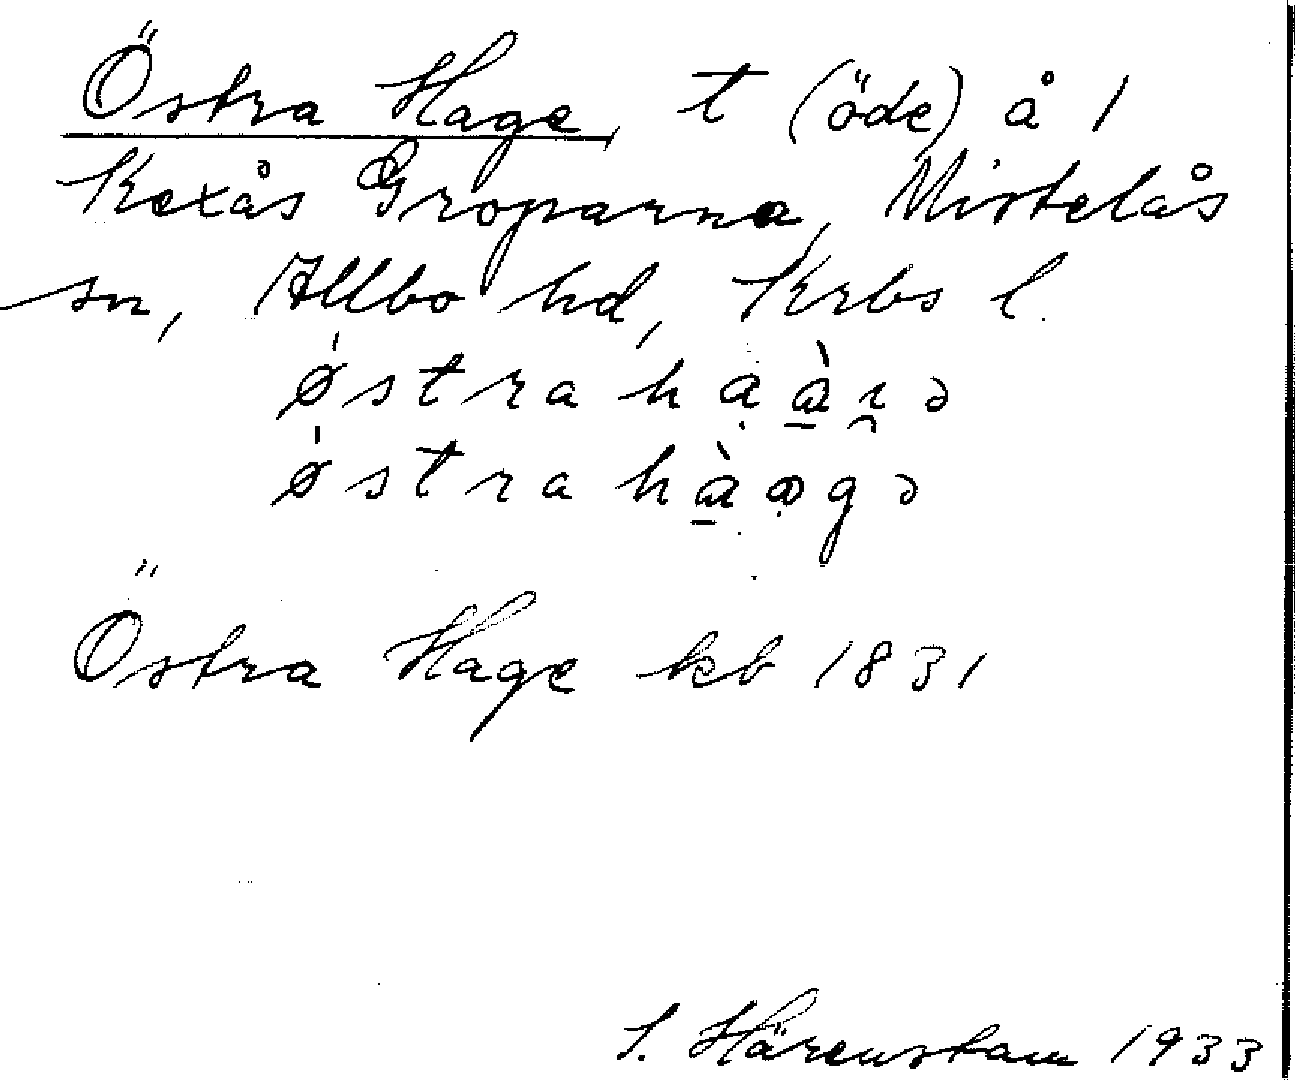 Östra Hage, t (öde) å 1
Kexås Groparna, Mistelås
sn, Allbo hd, Krbs l.
ǿstra hạà̱ı̯ə
ǿstra hà̱ọgə
Östra Hage kb 1831
S. Härenstam 1933